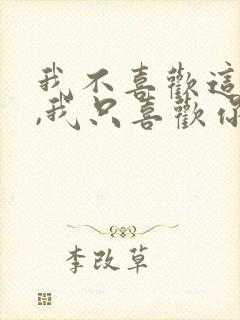 我不喜歡這
,我只喜歡你
李改草